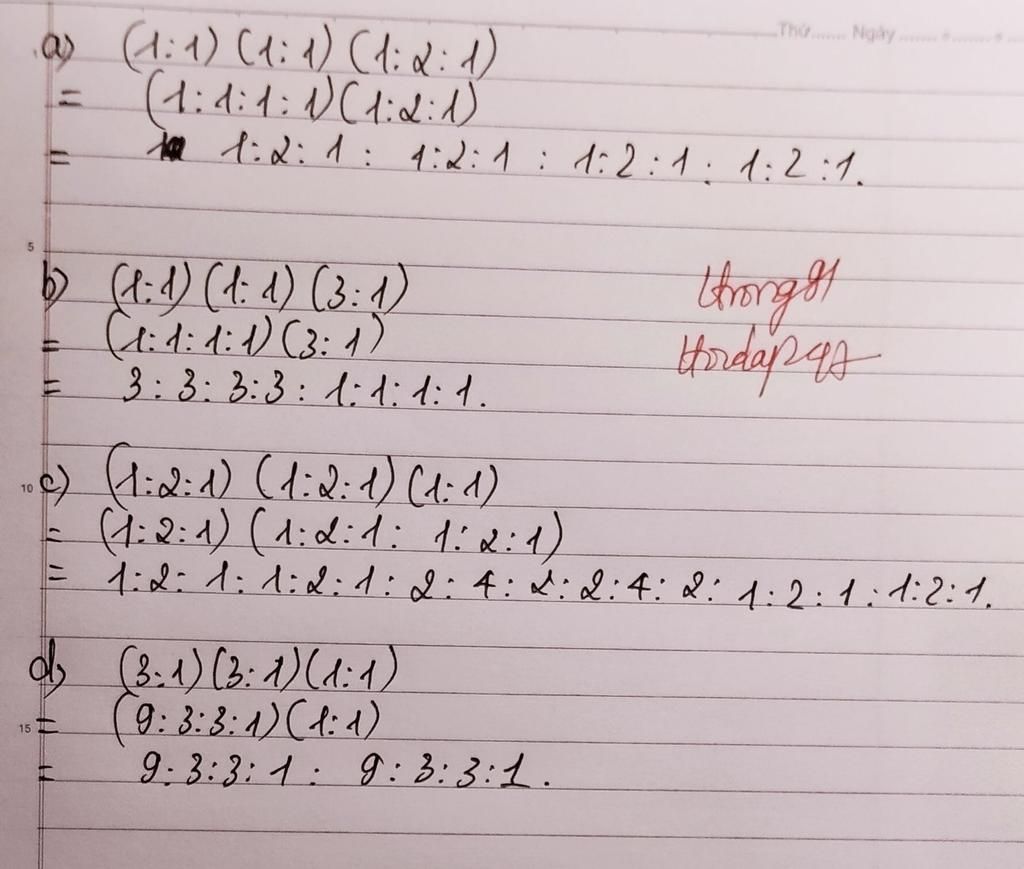 Thứ....... Ngày ...............
a) (1:1) (1:1) (1:2:1)
= (1:1:1:1)(1:2:1)
= 1:2:1 : 1:2:1 : 1:2:1 : 1:2:1.
5
b) (1:1) (1:1) (3:1)
= (1:1:1:1)(3:1)
= 3:3:3:3:1:1:1:1.
10 c) (1:2:1) (1:2:1)(1:1)
= (1:2:1) (1:2:1: 1:2:1)
= 1:2:1:1:2:1:2:4:2:2:4:2:1:2:1:1:2:1.
d) (3:1)(3:1)(1:1)
15 = (9:3:3:1)(1:1)
= 9:3:3:1: 9:3:3:1.